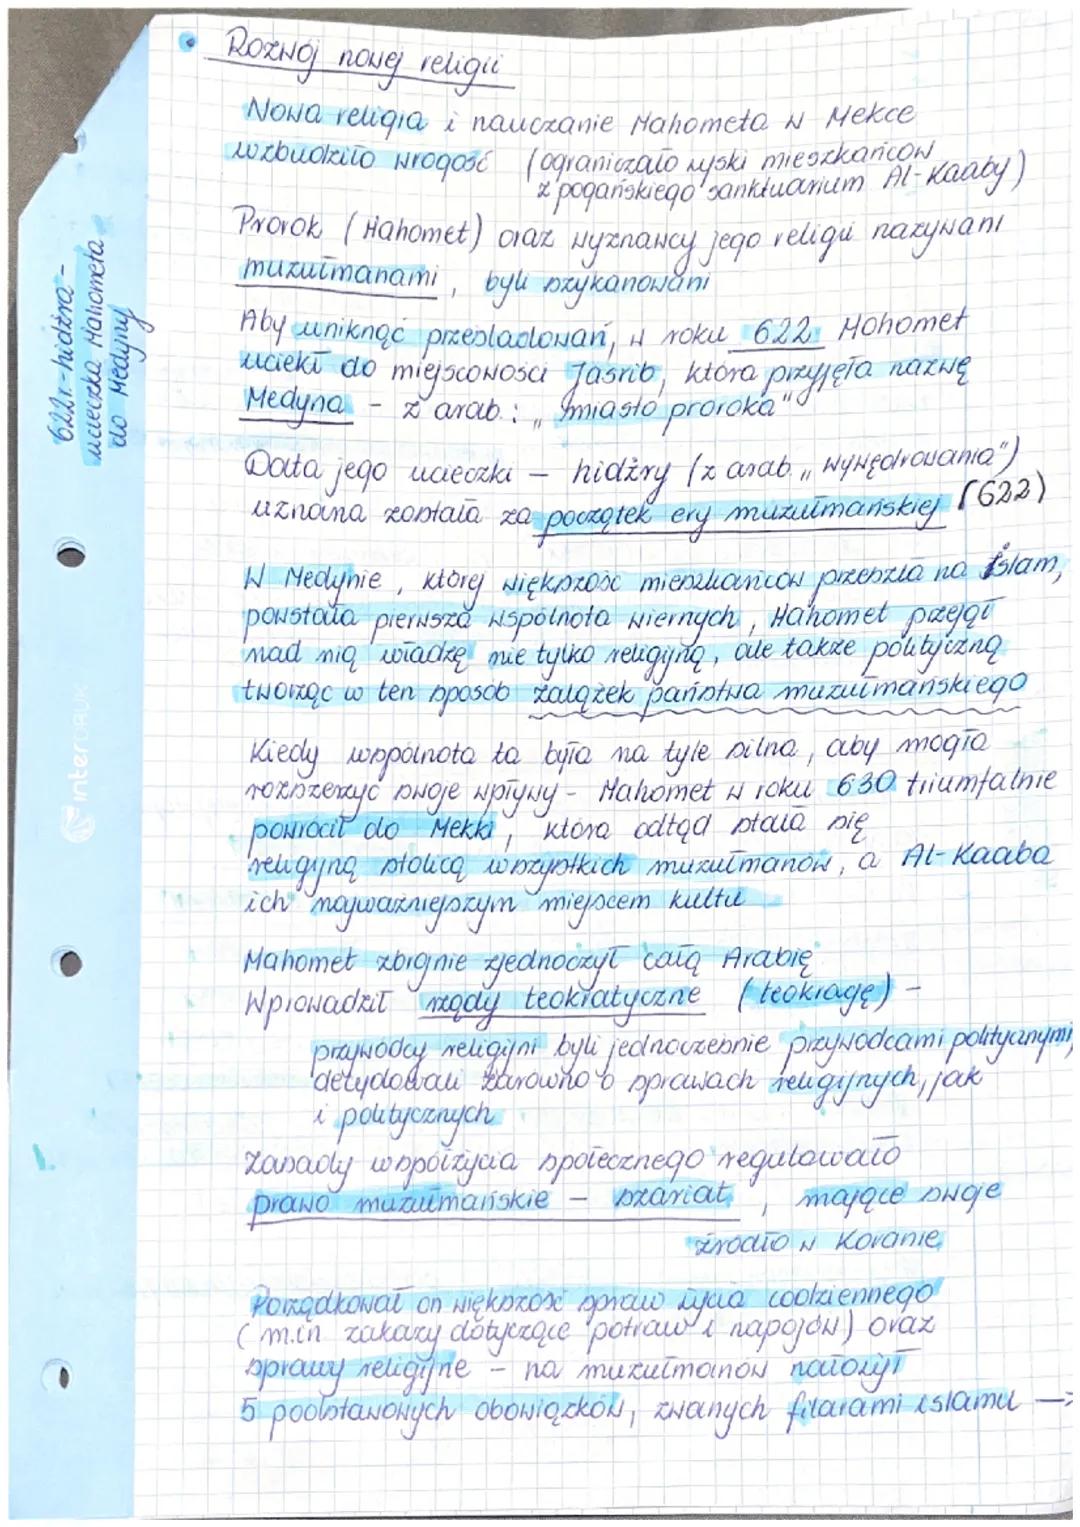 Rozwój nowej religii
Nowa religia i nauczanie Mahometa w Mekce
wzbudziło wrogość (ograniczało zyski mieszkańców
z pogańskiego sanktuarium Al-Kaaby)
Prorok (Mahomet) oraz wyznawcy jego religii nazywani
muzułmanami, byli szykanowani
Aby uniknąć prześladowań, w roku 622 Mohomet
uciekł do miejscowości Jasrib, która przyjęła nazwę
Medyna - z arab.: „miasto proroka"
622r. - hidżra -
ucieczka Mahometa
do Medyny
Data jego ucieczki - hidżry (z arab. „wywędrowania")
uznana została za początek ery muzułmańskiej (622)
W Medynie, której większość mieszkańców przeszła na islam,
powstała pierwsza wspólnota wiernych, Mahomet przejął
nad nią władzę nie tylko religijną, ale także polityczną
tworząc w ten sposób zalążek państwa muzułmańskiego
Kiedy wspólnota ta była na tyle silna, aby mogła
rozszerzyć swoje wpływy - Mahomet w roku 630 triumfalnie
powrócił do Mekki, która odtąd stała się
religijną stolicą wszystkich muzułmanów, a Al-Kaaba
ich najważniejszym miejscem kultu
Mahomet zbrojnie zjednoczył całą Arabię
Wprowadził rządy teokratyczne (teokrację) -
przywódcy religijni byli jednocześnie przywódcami politycznymi,
detydowali zarówno o sprawach religijnych, jak
i politycznych
Zasady współżycia społecznego regulowało
prawo muzułmańskie - szariat, mające swoje
źródło w Koranie
Porządkował on większość spraw życia codziennego
(m.in zakazy dotyczące potraw i napojów) oraz
sprawy religijne - na muzułmanów nałożył
5 podstawowych obowiązków, zwanych filarami islamu →
interDRUK